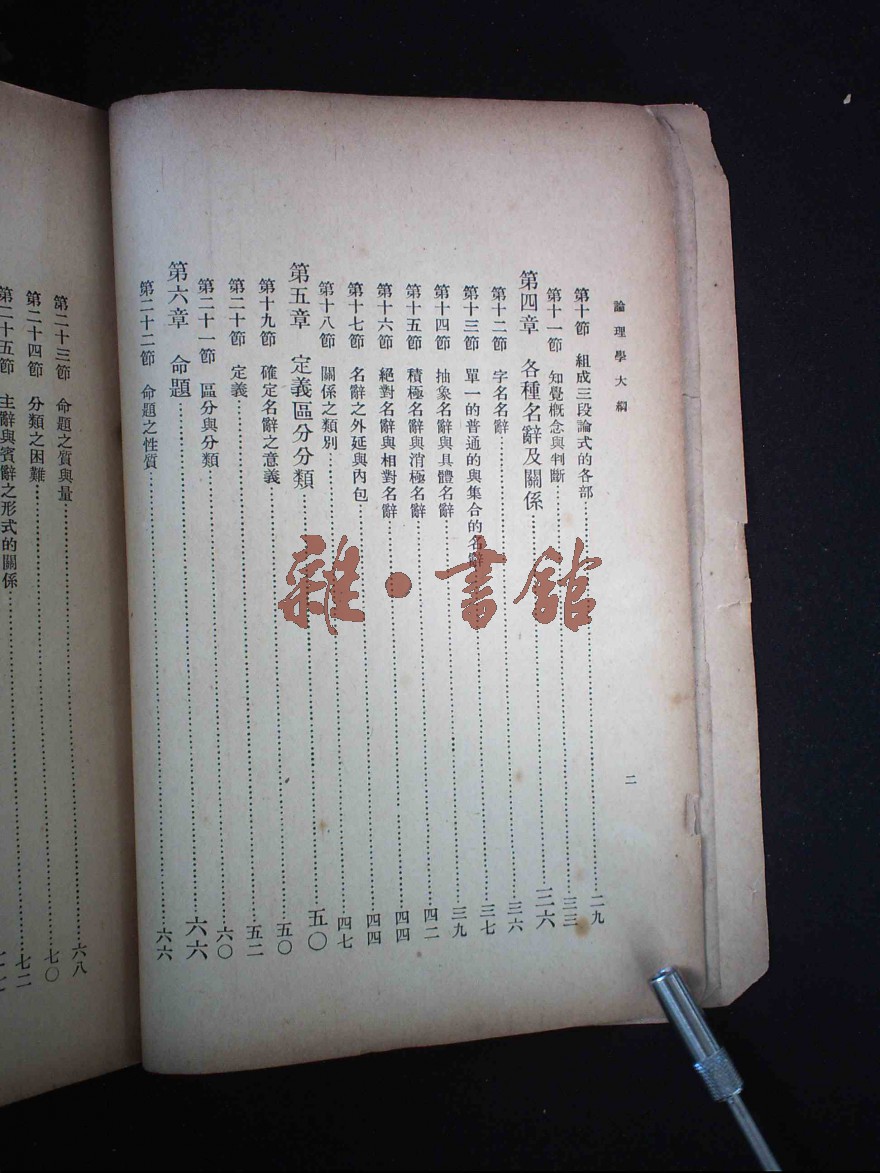 論理學大綱
二
第十節 組成三段論式的各部……二九
第十一節 知覺概念與判斷……三三
第四章 各種名辭及關係……三六
第十二節 字名名辭……三六
第十三節 單一的普通的與集合的名辭……三七
第十四節 抽象名辭與具體名辭……三九
第十五節 積極名辭與消極名辭……四二
第十六節 絕對名辭與相對名辭……四四
第十七節 名辭之外延與內包……四四
第十八節 關係之類別……四七
第五章 定義區分分類……五〇
第十九節 確定名辭之意義……五〇
第二十節 定義……五二
第二十一節 區分與分類……六〇
第六章 命題……六六
第二十二節 命題之性質……六六
第二十三節 命題之質與量……六八
第二十四節 分類之困難……七〇
第二十五節 主辭與賓辭之形式的關係……七二
雜·書館